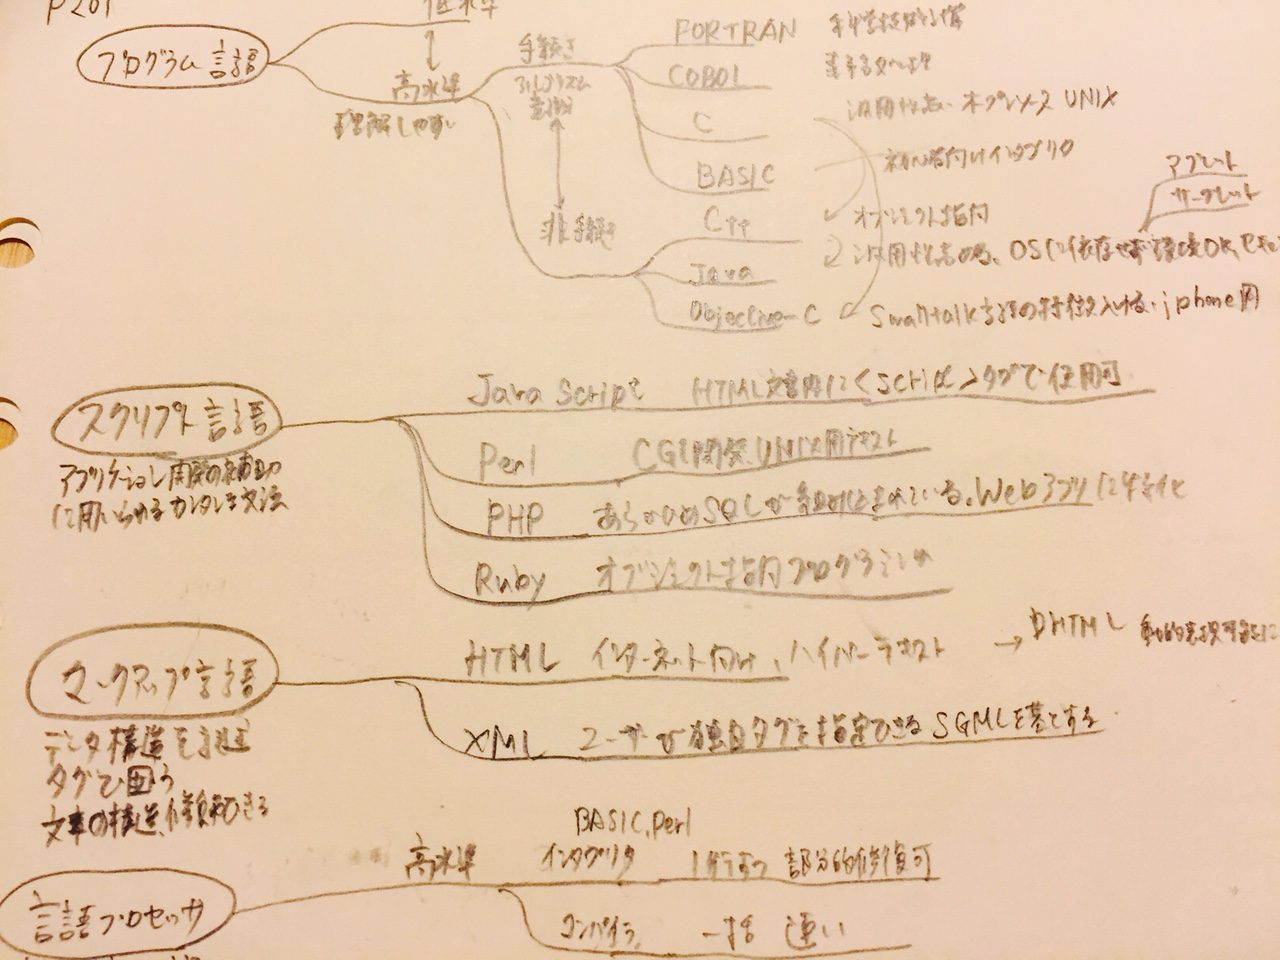 P201
プログラム言語
低水準
高水準
理解しやすい
手続き
アルゴリズム
非手続き
FORTRAN
COBOL
C
汎用性高い オブレソース UNIX
BASIC
初心者向けインタプリタ
C++
オブジェクト指向
アプレット
サーブレット
Java
汎用性高める、OSに依存せず環境OK
Objective-C
Smalltalk言語の特徴入れる、iphone用
スクリプト言語
アプリケーション開発の補助
に用いられるカンタンな文法
Java Script HTML文書内に<script>タグで使用可
Perl CGI開発、UNIX用テキスト
PHP あらかじめSQLが組み込まれている。Webアプリに特化
Ruby オブジェクト指向プログラミング
マークアップ言語
データ構造を記述
タグで囲う
文章の構造
HTML インターネット向け、ハイパーテキスト → DHTML
XML ユーザが独自タグを指定できる SGMLを基とする
言語プロセッサ
高水準
BASIC, Perl
インタプリタ 1行ずつ 部分的修復可
コンパイラ 一括 速い